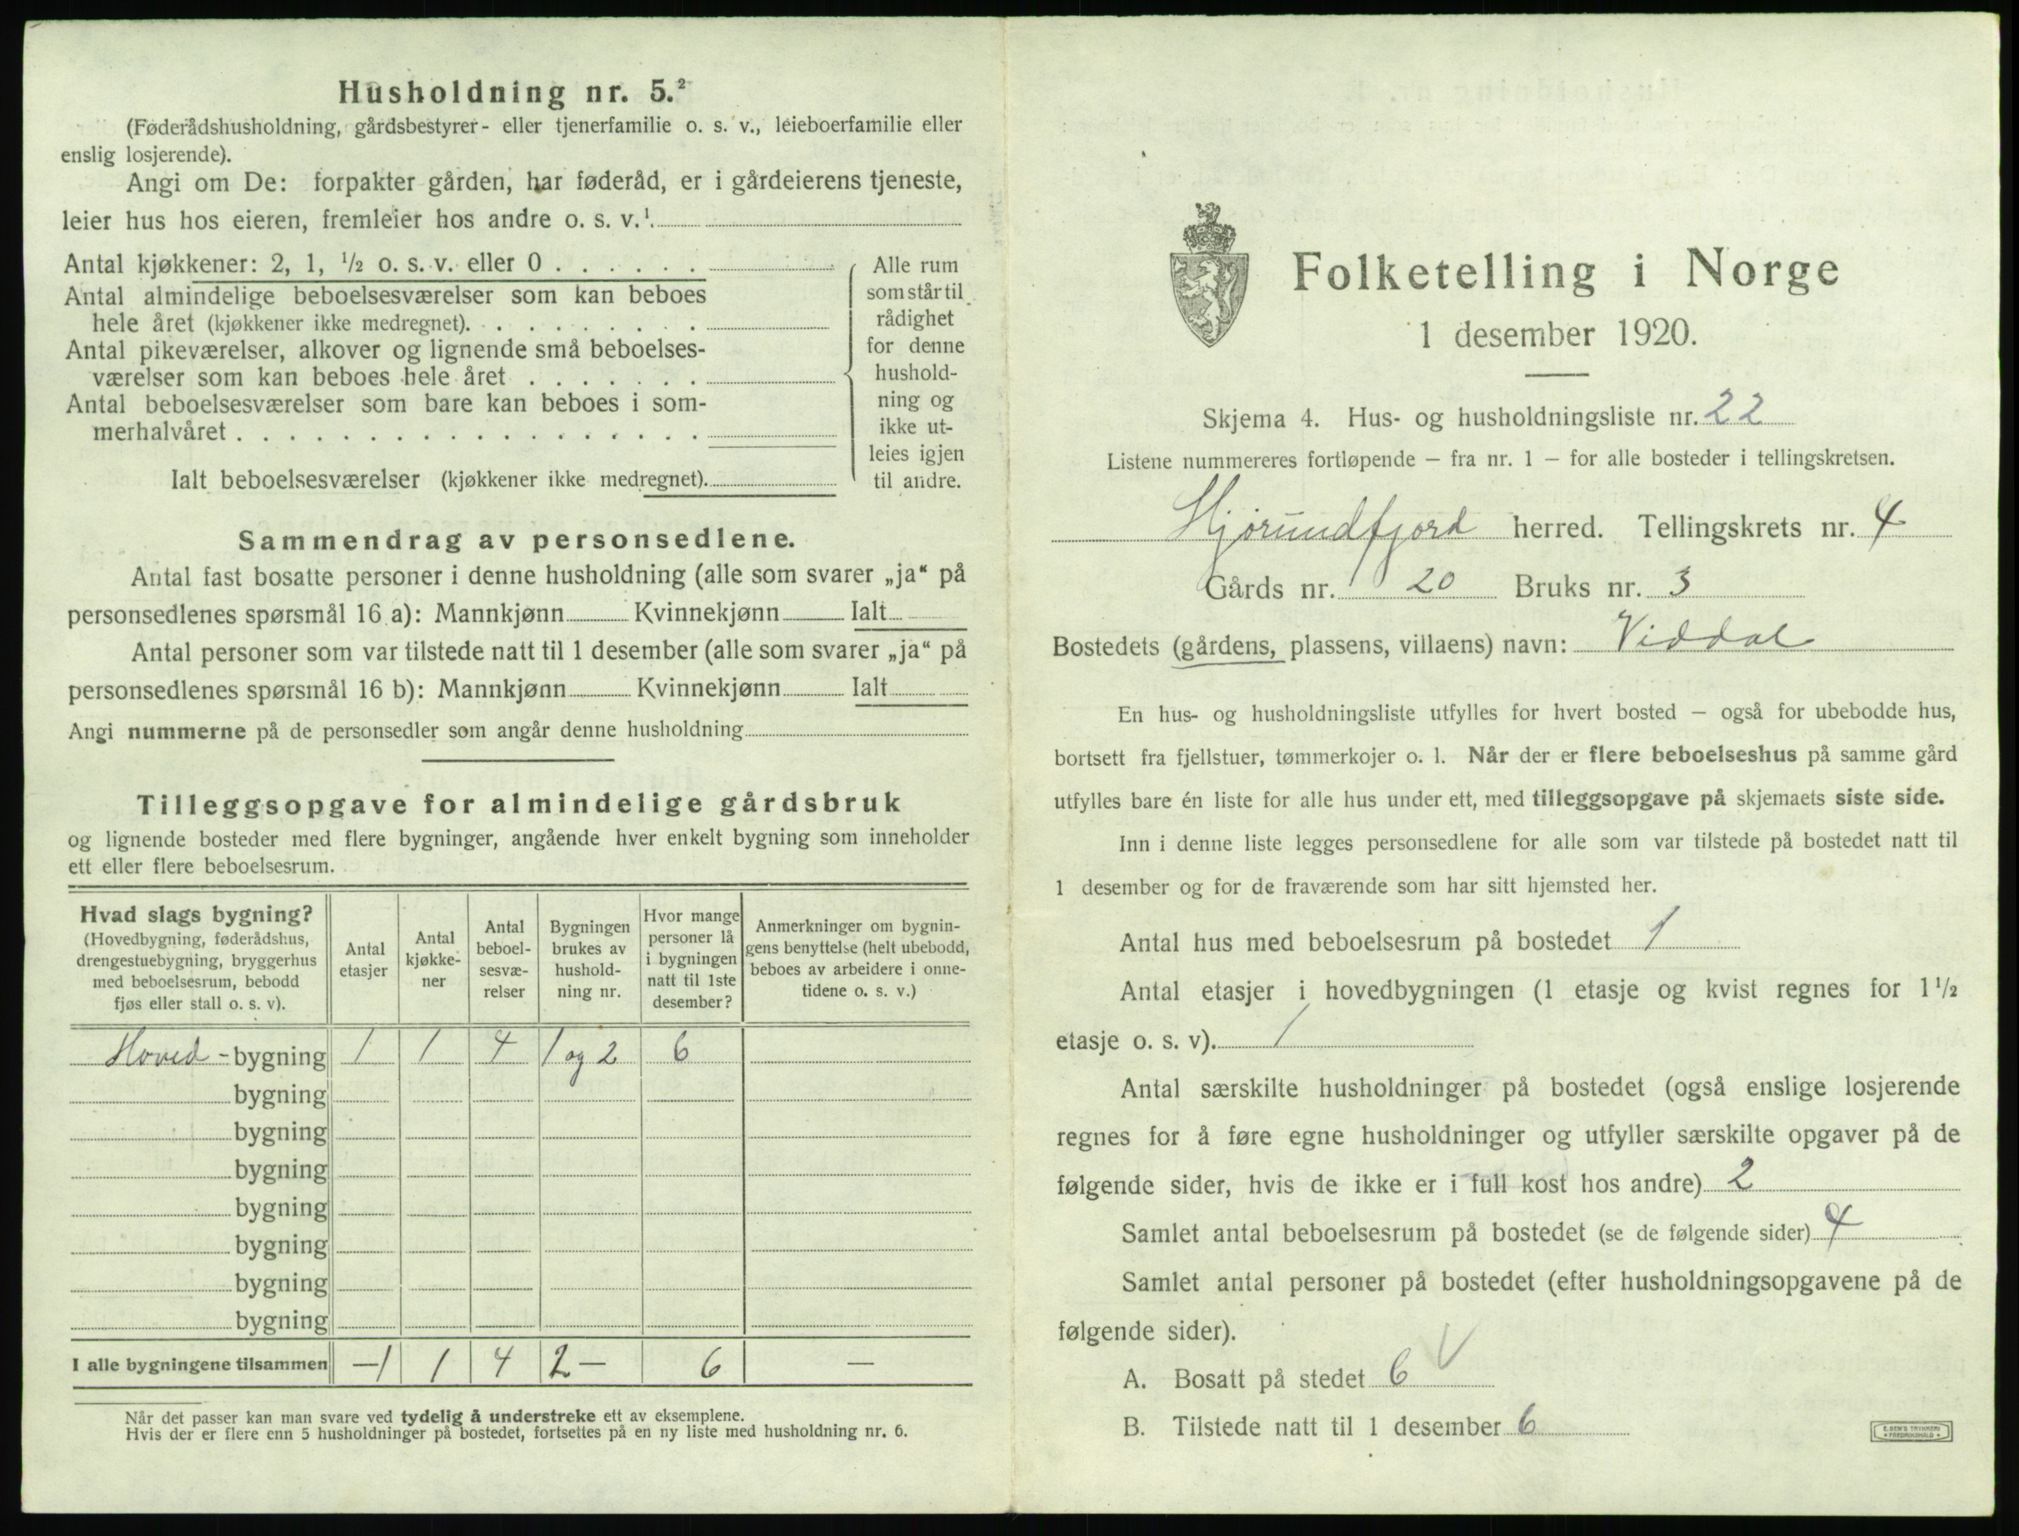 Husholdning nr. 5.²
(Føderådshusholdning, gårdsbestyrer- eller tjenerfamilie o. s. v., leieboerfamilie eller
enslig losjerende).
Angi om De: forpakter gården, har føderåd, er i gårdeierens tjeneste,
leier hus hos eieren, fremleier hos andre o. s. v.¹
Antal kjøkkener: 2, 1, ½ o. s. v. eller 0 . . . . . .
Antal almindelige beboelsesværelser som kan beboes
hele året (kjøkkener ikke medregnet). . . . . . . . .
Antal pikeværelser, alkover og lignende små beboelses-
værelser som kan beboes hele året . . . . . . .
Antal beboelsesværelser som bare kan beboes i som-
merhalvåret . . . . . . . . . . . . . . . . . .
Ialt beboelsesværelser (kjøkkener ikke medregnet).
Alle rum
som står til
rådighet
for denne
hushold-
ning og
ikke ut-
leies igjen
til andre.
Sammendrag av personsedlene.
Antal fast bosatte personer i denne husholdning (alle som svarer „ja“ på
personsedlenes spørsmål 16 a): Mannkjønn Kvinnekjønn Ialt
Antal personer som var tilstede natt til 1 desember (alle som svarer „ja“ på
personsedlenes spørsmål 16 b): Mannkjønn Kvinnekjønn Ialt
Angi nummerne på de personsedler som angår denne husholdning
Tilleggsopgave for almindelige gårdsbruk
og lignende bosteder med flere bygninger, angående hver enkelt bygning som inneholder
ett eller flere beboelsesrum.
Hvad slags bygning?
(Hovedbygning, føderådshus,
drengestuebygning, bryggerhus
med beboelsesrum, bebodd
fjøs eller stall o. s. v).
Antal
etasjer
Antal
kjøkke-
ner
Antal
beboel-
sesvæ-
relser
Bygningen
brukes av
hushold-
ning nr.
Hvor mange
personer lå
i bygningen
natt til 1ste
desember?
Anmerkninger om bygnin-
gens benyttelse (helt ubebodd,
beboes av arbeidere i onne-
tidene o. s. v.)
Hoved-bygning 1 1 4 1 og 2 6
bygning
bygning
bygning
bygning
bygning
bygning
bygning
I alle bygningene tilsammen —1 1 4 2— 6 —
Når det passer kan man svare ved tydelig å understreke ett av eksemplene.
Hvis der er flere enn 5 husholdninger på bostedet, fortsettes på en ny liste med husholdning nr. 6.
Folketelling i Norge
1 desember 1920.
Skjema 4. Hus- og husholdningsliste nr. 22
Listene nummereres fortløpende – fra nr. 1 – for alle bosteder i tellingskretsen.
Hjørundfjord herred. Tellingskrets nr. 4
Gårds nr. 20 Bruks nr. 3
Bostedets (gårdens, plassens, villaens) navn: Viddal
En hus- og husholdningsliste utfylles for hvert bosted – også for ubebodde hus,
bortsett fra fjellstuer, tømmerkojer o. l. Når der er flere beboelseshus på samme gård
utfylles bare én liste for alle hus under ett, med tilleggsopgave på skjemaets siste side.
Inn i denne liste legges personsedlene for alle som var tilstede på bostedet natt til
1 desember og for de fraværende som har sitt hjemsted her.
Antal hus med beboelsesrum på bostedet 1
Antal etasjer i hovedbygningen (1 etasje og kvist regnes for 1½
etasje o. s. v). 1
Antal særskilte husholdninger på bostedet (også enslige losjerende
regnes for å føre egne husholdninger og utfyller særskilte opgaver på de
følgende sider, hvis de ikke er i full kost hos andre) 2
Samlet antal beboelsesrum på bostedet (se de følgende sider) 4
Samlet antal personer på bostedet (efter husholdningsopgavene på de
følgende sider).
A. Bosatt på stedet 6 V
B. Tilstede natt til 1 desember 6